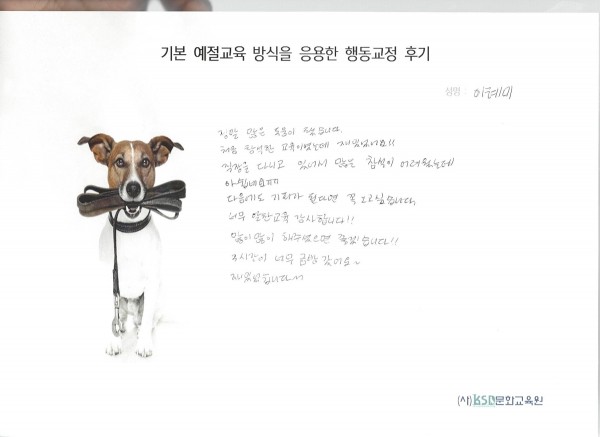 기본 예절교육 방식을 응용한 행동교정 후기
성명 : 이혜미
정말 많은 도움이 됐습니다.
처음 참석한 교육이었는데 재밌었어요!!
직장을 다니고 있어서 많은 참석이 어려웠는데
아쉽네요ㅠㅠ
다음에도 기회가 된다면 꼭 오고싶습니다.
너무 알찬교육 감사합니다!!
많이많이 해주셨으면 좋겠습니다!!
시간이 너무 금방 갔어요~
재밌었습니다~~
(사)KSD문화교육원